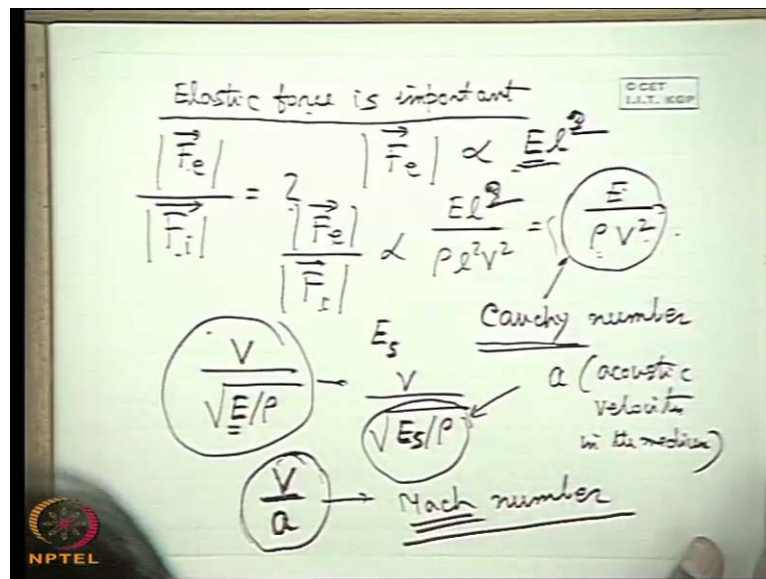 Elastic force is important
© CET
I.I.T. KGP
|F⃗e| / |F⃗i| = ?
|F⃗e| ∝ El²
|F⃗e| / |F⃗i| ∝ El² / ρl²V² = E / ρV²
Cauchy number
V / √E/ρ → Es V / √Es/ρ
a (acoustic
velocity
in the medium)
V / a → Mach number
NPTEL